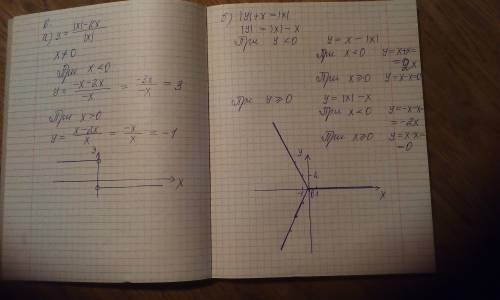 а) y = |x|-2x / |x|
x≠0
При x<0
y = -x-2x / -x = 3x / -x = 3
При x>0
y = x-2x / x = -x / x = -1
y
x
б) |y|+x=|x|
|y| = |x|-x
При y<0 y = x-|x|
При x<0 y=x+x=
=2x
При x≥0 y=x-x=0
При y≥0 y=|x|-x
При x<0 y=-x-x=
=-2x
При x≥0 y=x-x=
=0
y
x